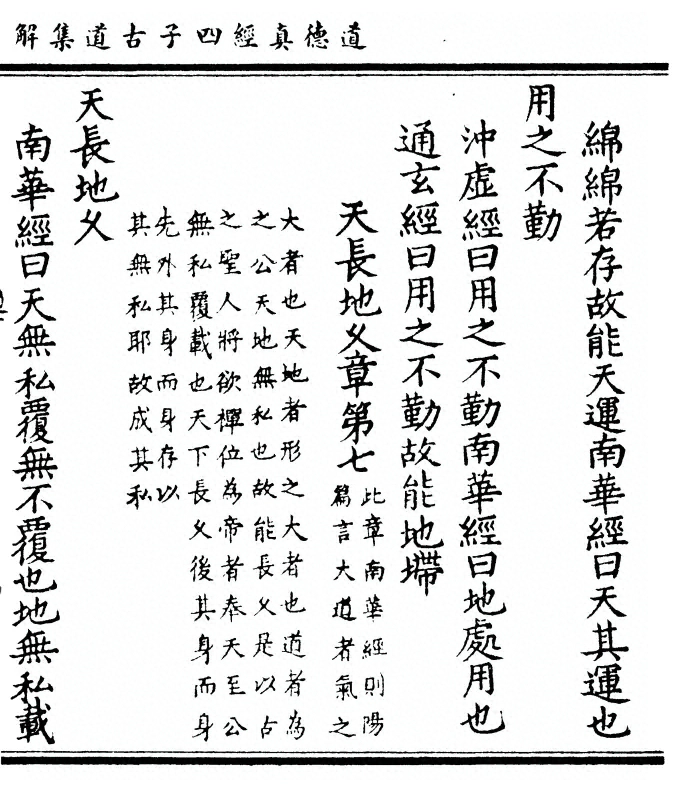 道德真經四子古道集解
綿綿若存故能天運南華經曰天其運也
用之不勤
沖虛經曰用之不勤南華經曰地處用也
通玄經曰用之不勤故能地墆
天長地久章第七
此章南華經則陽
篇言大道者氣之
大者也天地者形之大者也道者為
之公天地無私也故能長久是以古
之聖人將欲禪位為帝者奉天至公
無私覆載也天下長久後其身而身
先外其身而身存以
其無私耶故成其私
天長地久
南華經曰天無私覆無不覆也地無私載